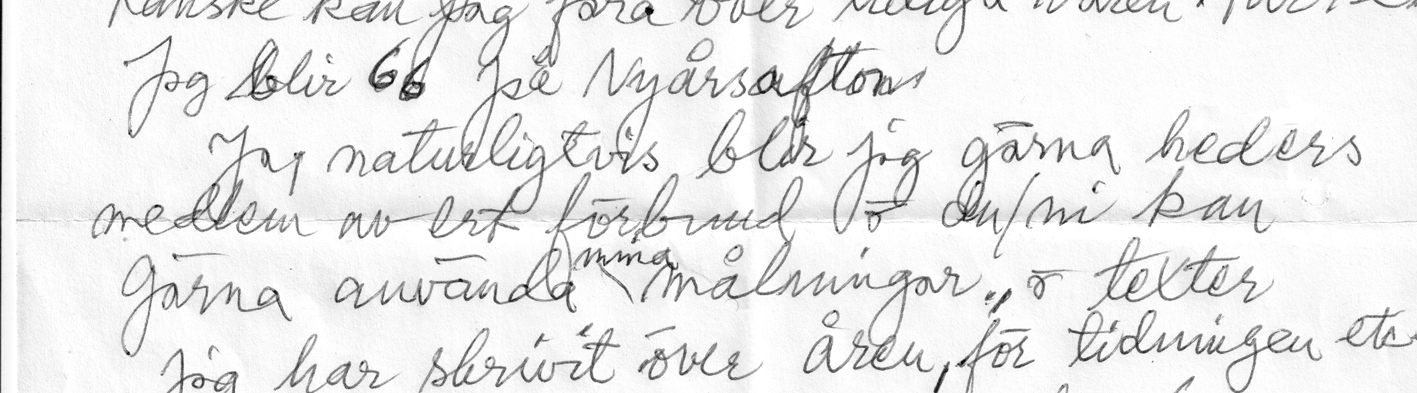 Kanske kan jag föra över
Jag blir 66 på Nyårsafton
Ja, naturligtvis blir jag gärna heders
medlem av ert förbund o du/ni kan
Gärna använda mina målningar, o texter
jag har skrivit över åren, för tidningen etc